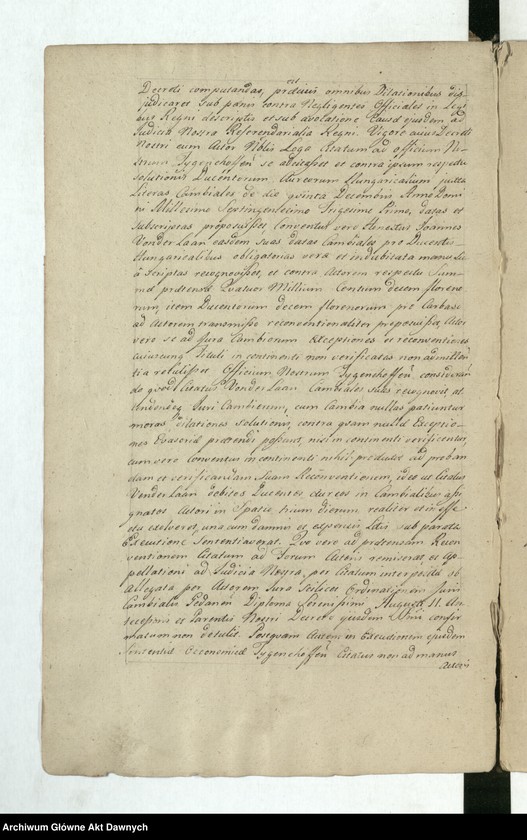 Decreti computandas, præviis omnibus Dilationibus dis
judicaret sub pœnis contra Negligentes Officiales in Legi
bus Regni descriptis et sub avolatione Causæ ejusdem ad
Judicia Nostra Referendarialia Regni. Vigore cujus Decreti
Nostri cum Actor Nblis Lego Citatum ad officium No
strum Tygenchoffen se abiisset et contra ipsum respectu
solutionis Ducentorum Aureorum Hungaricalium juxta
Literas Cambiales de die quinta Decembris Anno Domi
ni Millesimo Septingentesimo Trigesimo Primo, datas et
subscriptas proposuisset Conventus vero Honestus Joannes
Vonder Laan easdem suas datas Cambiales pro Ducentis
Hungaricalibus obligatorias vera et indubitata manu Su
a Scriptas recognovisset, et contra Actorem respectu Sum
mæ prætensæ Quatuor Millium Centum decem floreno
rum, item Ducentorum decem florenorum pro Carbasa
ad Actorem transmissa reconventionaliter proposuisset, Actor
vero se ad Jura Cambiorum exceptiones et reconventiones
cujuscunq tituli in continenti non verificatas non admitten
tia retulisset Officium Nostrum Tygenhoffen, consideran
do quod Citatus Vonder Laan Cambiales suas recognovit, at
Juri Cambiorum, cum Cambia nullas patiuntur
moras, dilationes solutionis, contra quam nullæ Exceptio
nes Evasoriæ prætendi possunt, nisi in continenti verificentur,
cum vero Conventus in continenti nihil produxit ad proban
dam et verificandam suam Reconventionem, ideo ut Citatus
Vonder Laan debitos Ducentos aureos in Cambialibus assi
gnatos Actori in Spatio trium dierum realiter et in effe
ctu exolveret, una cum damnis et expensis Litis sub parata
Executione Sententiaverat. Quo vero ad prætensam Recon
ventionem Citatum ad Forum Actoris remiserat et Ap
pellationi ad Judicia Nostra, per Citatum interpositæ ob
Allegata per Actorem Jura scilicet Ordinationem Juris
Cambialis Gedanen Diploma Serenissimi Augusti II. An
tecessoris et Parentis Nostri Decreto ejusdem confir
matum non detulit. Postquam Autem in Executionem ejusdem
Sententiæ Œconomica Tygenchoffen Citatus non ad manus
Actoris
Archiwum Główne Akt Dawnych